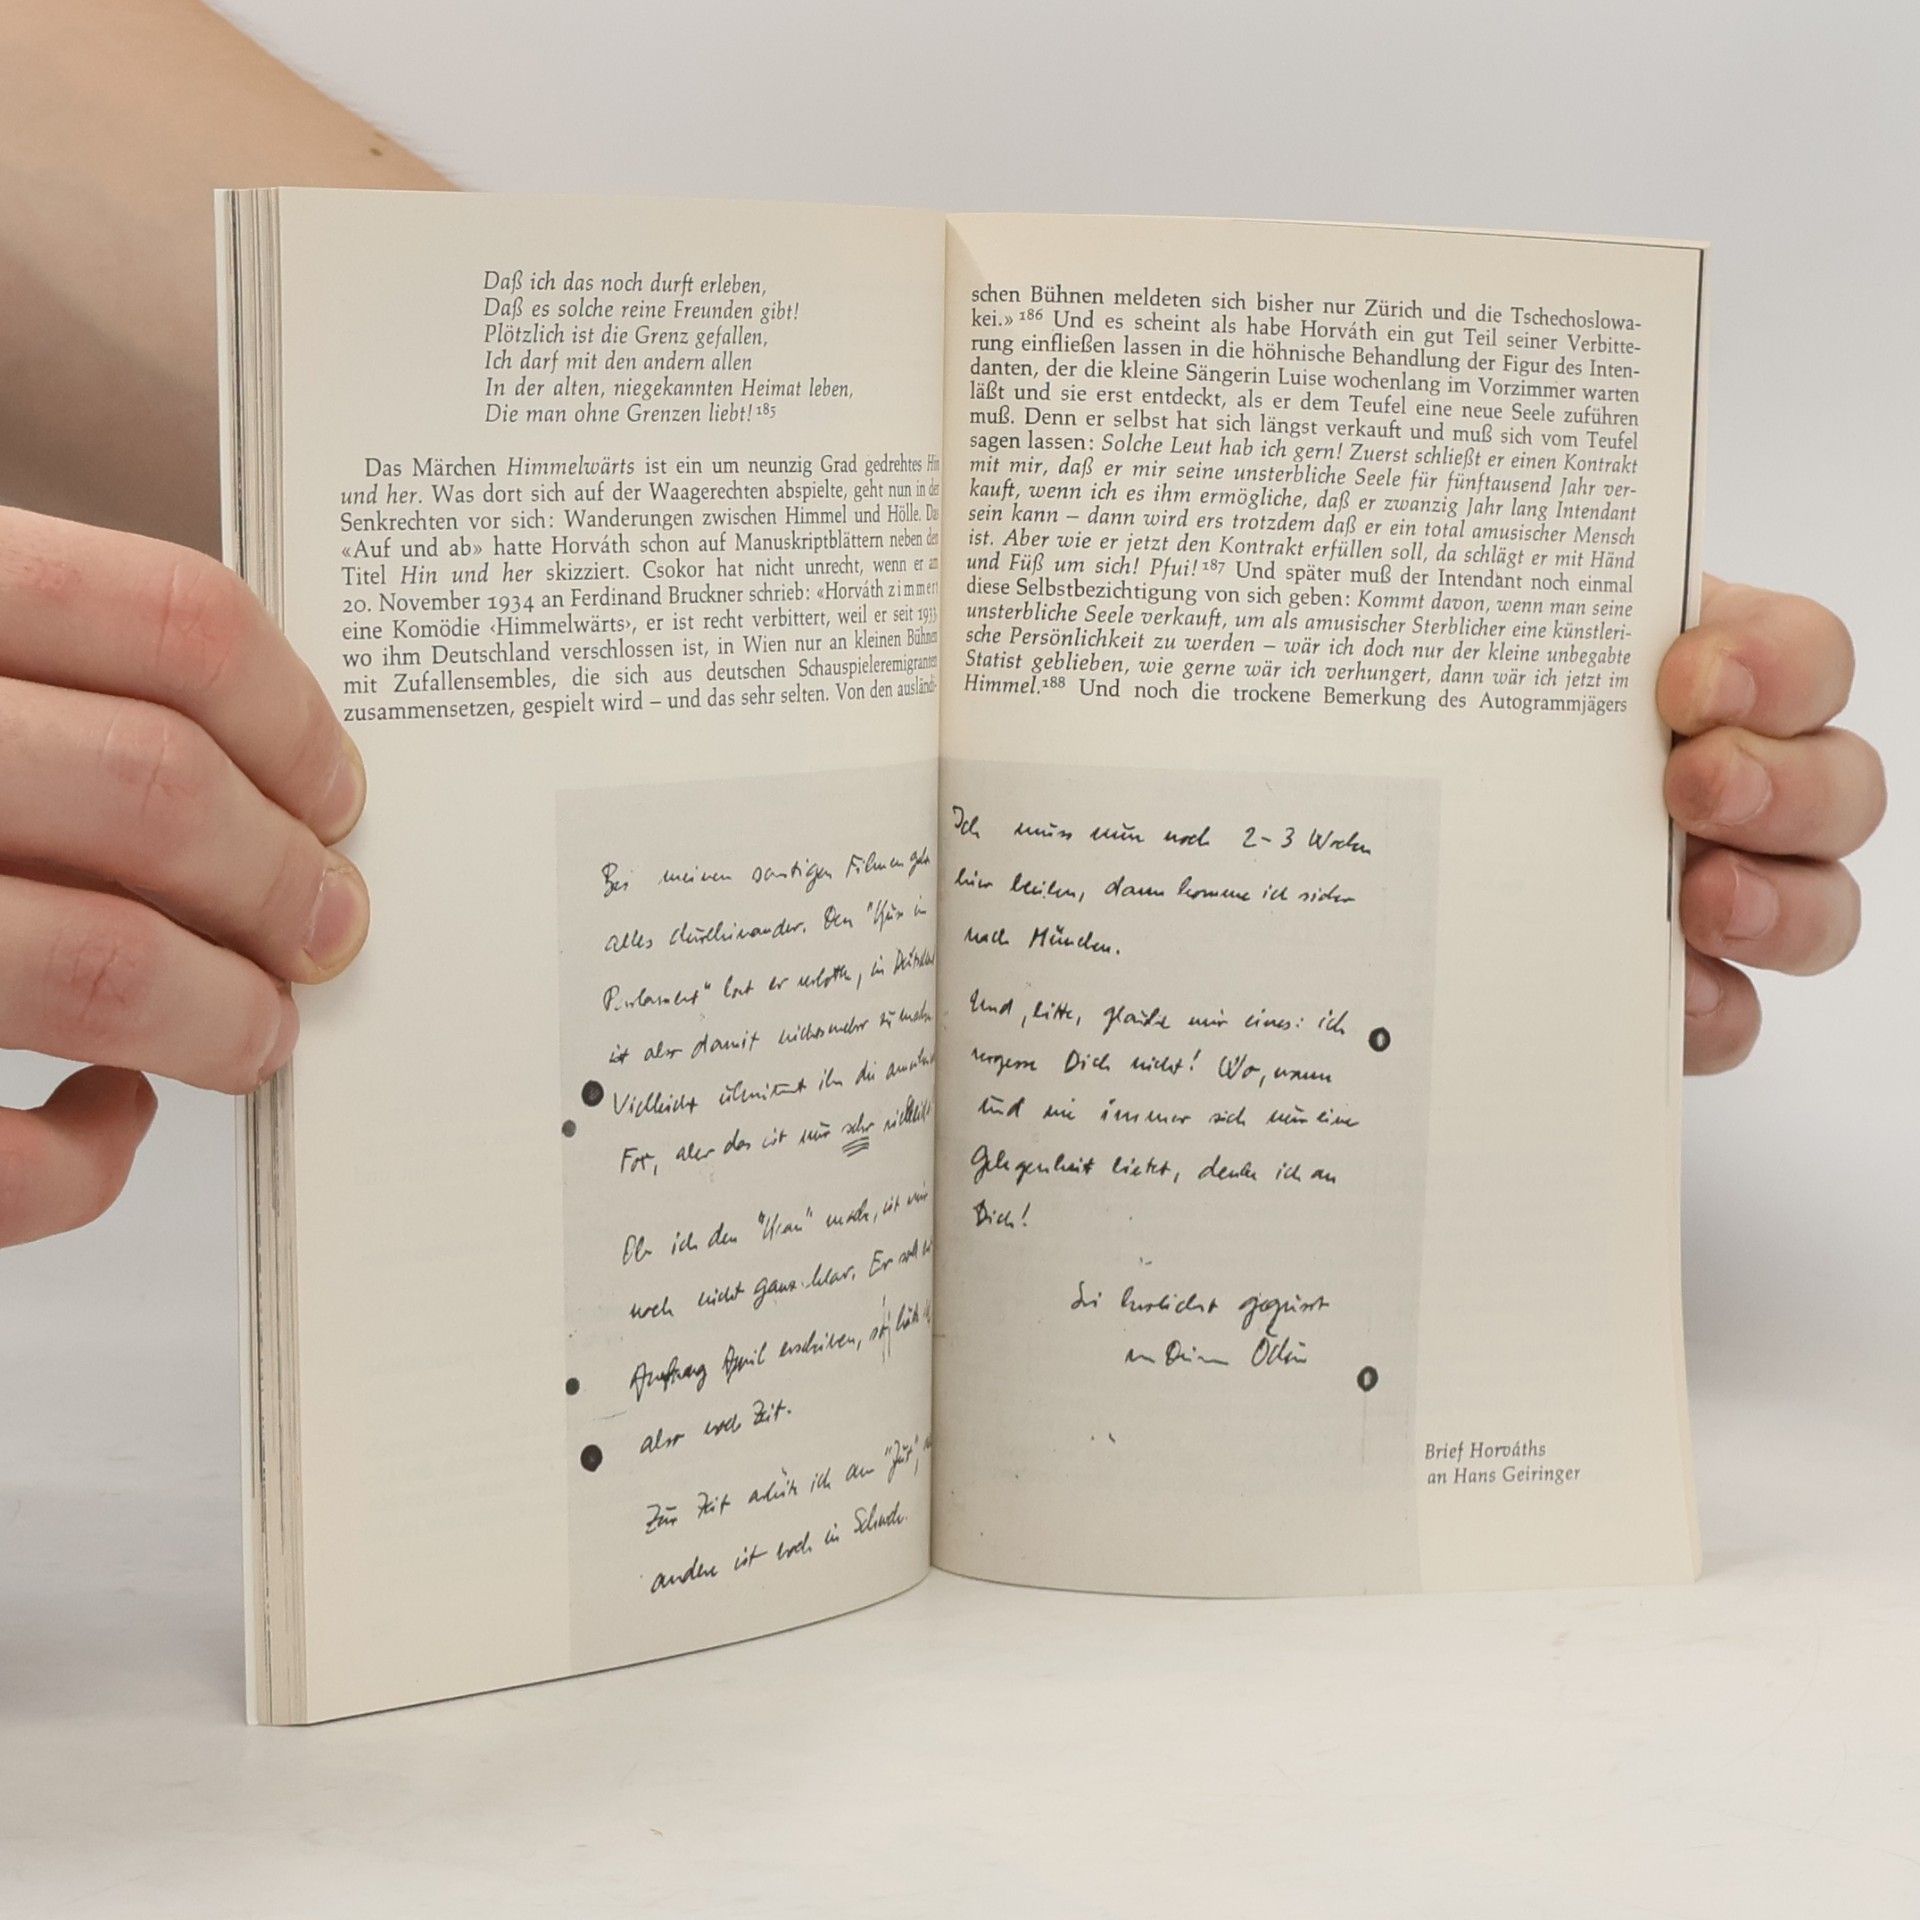 Daß ich das noch durft erleben,
Daß es solche reine Freunden gibt!
Plötzlich ist die Grenz gefallen,
Ich darf mit den andern allen
In der alten, niegekannten Heimat leben,
Die man ohne Grenzen liebt!185
Das Märchen Himmelwärts ist ein um neunzig Grad gedrehtes Hin
und her. Was dort sich auf der Waagerechten abspielte, geht nun in der
Senkrechten vor sich: Wanderungen zwischen Himmel und Hölle. Das
«Auf und ab» hatte Horváth schon auf Manuskriptblättern neben den
Titel Hin und her skizziert. Csokor hat nicht unrecht, wenn er am
20. November 1934 an Ferdinand Bruckner schrieb: «Horváth zimmert
eine Komödie ‹Himmelwärts›, er ist recht verbittert, weil er seit 1933
wo ihm Deutschland verschlossen ist, in Wien nur an kleinen Bühnen
mit Zufallensembles, die sich aus deutschen Schauspieleremigranten
zusammensetzen, gespielt wird – und das sehr selten. Von den ausländi-
Bei meinen sonstigen Filmen geht
alles durcheinander. Den "Kuss im
Parlament" hat er verboten, in
ist also damit nichts mehr zu machen
Vielleicht übernimmt ihn die
Fox, aber das ist nur sehr vielleicht
Ob ich den "Kean" mache, ist mir
noch nicht ganz klar. Er soll
Anfang April erscheinen,
also noch Zeit.
Zur Zeit arbeite ich an
andere ist noch in Schwebe.
schen Bühnen meldeten sich bisher nur Zürich und die Tschechoslowa-
kei.»186 Und es scheint als habe Horváth ein gut Teil seiner Verbitte-
rung einfließen lassen in die höhnische Behandlung der Figur des Inten-
danten, der die kleine Sängerin Luise wochenlang im Vorzimmer warten
läßt und sie erst entdeckt, als er dem Teufel eine neue Seele zuführen
muß. Denn er selbst hat sich längst verkauft und muß sich vom Teufel
sagen lassen: Solche Leut hab ich gern! Zuerst schließt er einen Kontrakt
mit mir, daß er mir seine unsterbliche Seele für fünftausend Jahr ver-
kauft, wenn ich es ihm ermögliche, daß er zwanzig Jahr lang Intendant
sein kann – dann wird ers trotzdem daß er ein total amusischer Mensch
ist. Aber wie er jetzt den Kontrakt erfüllen soll, da schlägt er mit Händ
und Füß um sich! Pfui!187 Und später muß der Intendant noch einmal
diese Selbstbezichtigung von sich geben: Kommt davon, wenn man seine
unsterbliche Seele verkauft, um als amusischer Sterblicher eine künstleri-
sche Persönlichkeit zu werden – wär ich doch nur der kleine unbegabte
Statist geblieben, wie gerne wär ich verhungert, dann wär ich jetzt im
Himmel.188 Und noch die trockene Bemerkung des Autogrammjägers
Ich muss nun noch 2-3 Wochen
hier bleiben, dann komme ich sicher
nach München.
Und, bitte, glaube mir eines: ich
vergesse Dich nicht! Wo, wann
und wie immer sich nur eine
Gelegenheit bietet, denke ich an
Dich!
Sei herzlichst gegrüsst
von Deinem Ödön
Brief Horváths
an Hans Geiringer